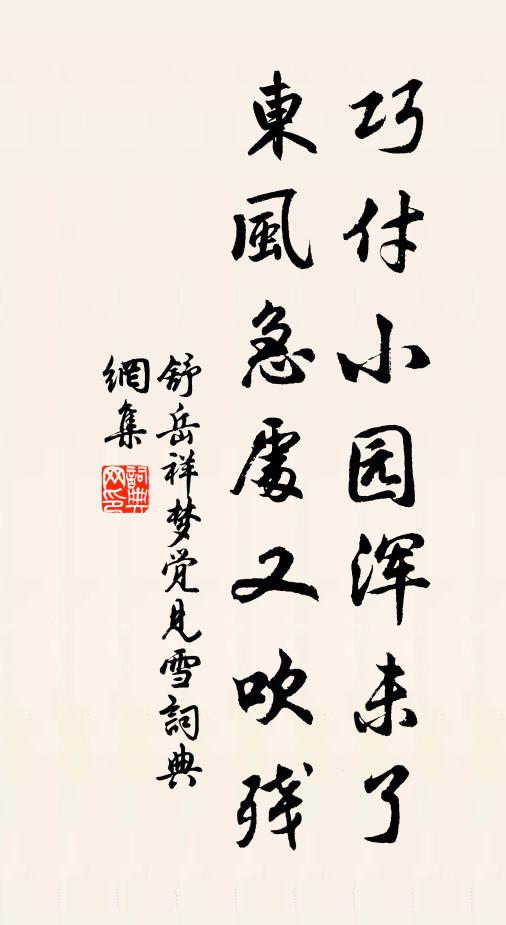 巧付小园浑未了
東風急處又吹残
舒岳祥梦觉见雪詞典
網集
詞典網印